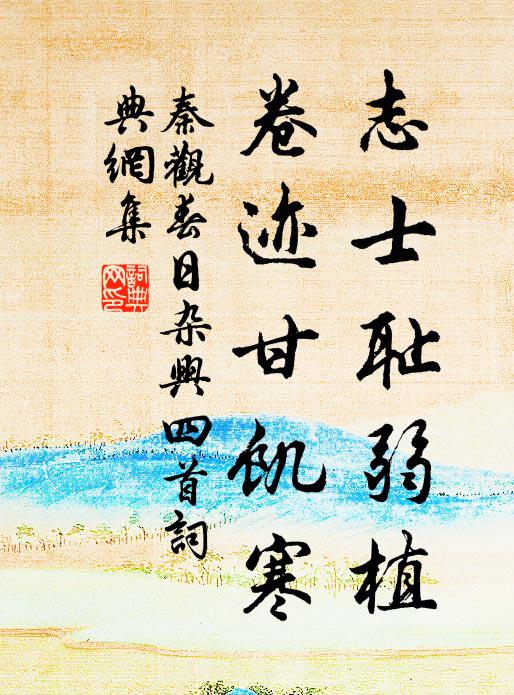 志士耻弱植
卷迹甘飢寒
秦觀春日杂興四首詞
典網集
詞典
网印